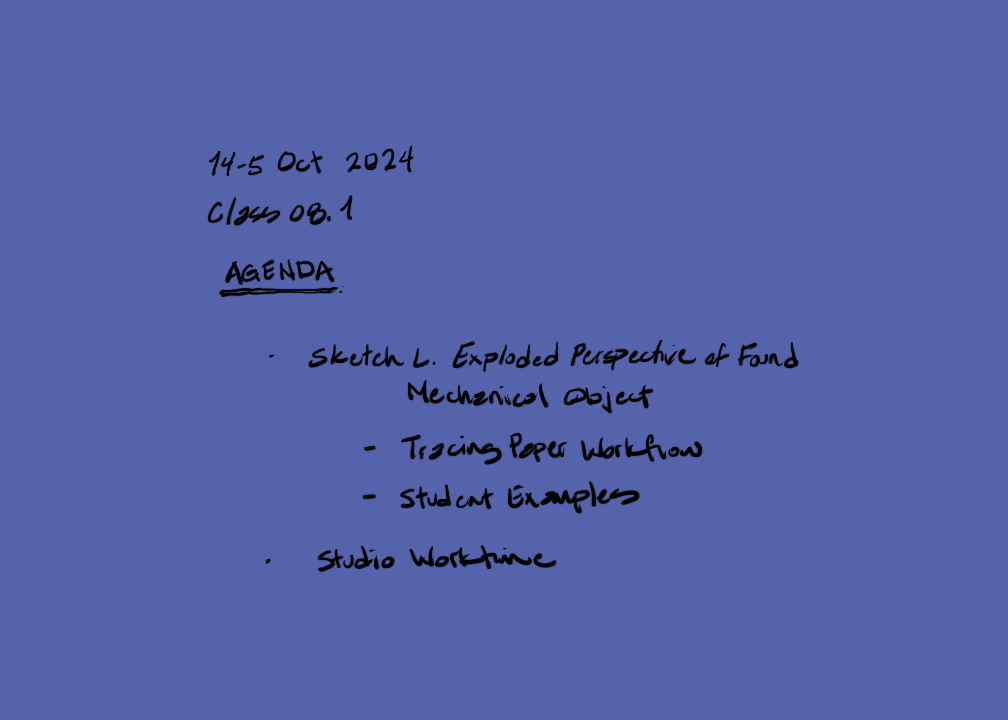 14-5 Oct 2024
Class 08.1
AGENDA
· Sketch L. Exploded Perspective of Found
Mechanical Object
- Tracing Paper Workflow
- Student Examples
· Studio Worktime